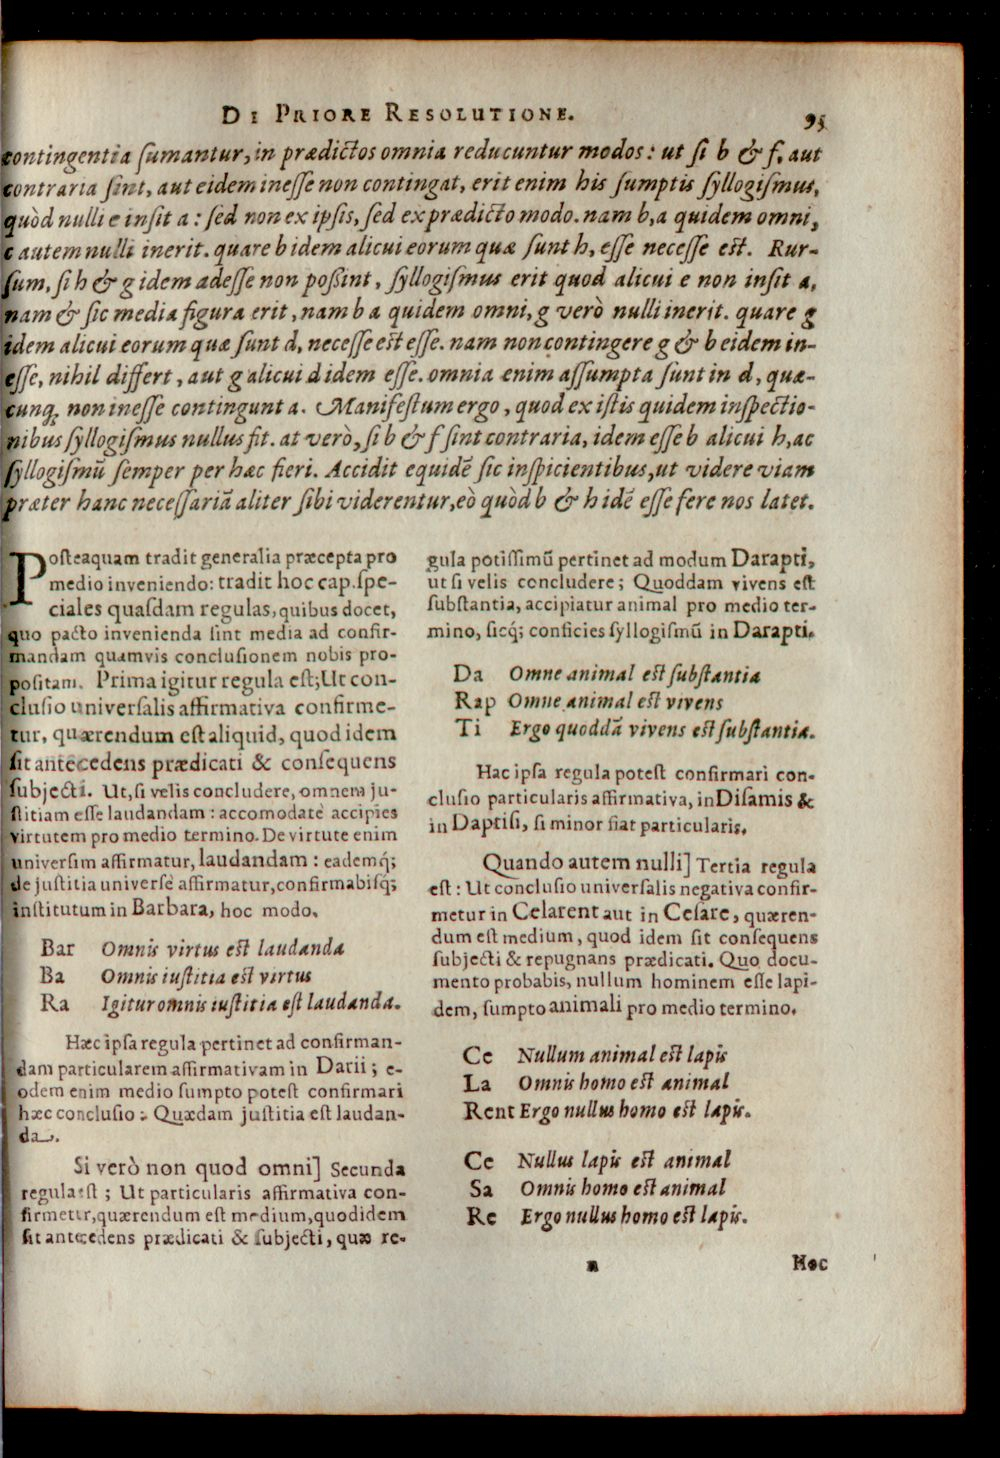 DE PRIORE RESOLUTIONE. 95
contingentia ſumantur, in prædictos omnia reducuntur modos: ut ſi b & f, aut
contraria ſint, aut eidem ineſſe non contingat, erit enim his ſumptis ſyllogiſmus,
quòd nulli e inſit a: ſed non ex ipſis, ſed ex prædicto modo. nam b, a quidem omni,
c autem nulli inerit. quare b idem alicui eorum quæ ſunt h, eſſe neceſſe est. Rur-
ſum, ſi h & g idem adeſſe non poſsint, ſyllogiſmus erit quod alicui e non inſit a,
nam & ſic media figura erit, nam b a quidem omni, g verò nulli inerit. quare g
idem alicui eorum quæ ſunt d, neceſſe est eſſe. nam non contingere g & b eidem in-
eſſe, nihil differt, aut g alicui d idem eſſe. omnia enim aſſumpta ſunt in d, quæ-
cunq; non ineſſe contingunt a. Manifeſtum ergo, quod ex iſtis quidem inſpectio-
nibus ſyllogiſmus nullus fit. at verò, ſi b & f ſint contraria, idem eſſe b alicui h, ac
ſyllogiſmũ ſemper per hæc fieri. Accidit equidẽ ſic inſpicientibus, ut videre viam
præter hanc neceſſariã aliter ſibi viderentur, eò quòd b & h idẽ eſſe fere nos latet.
Poſteaquam tradit generalia præcepta pro
medio inveniendo: tradit hoc cap. ſpe-
ciales quaſdam regulas, quibus docet,
quo pacto invenienda ſint media ad confir-
mandam quamvis concluſionem nobis pro-
poſitam. Prima igitur regula eſt; Ut con-
cluſio univerſalis affirmativa confirme-
tur, quærendum eſt aliquid, quod idem
ſit antecedens prædicati & conſequens
ſubjecti. Ut, ſi velis concludere, omnem ju-
ſtitiam eſſe laudandam: accomodatè accipies
virtutem pro medio termino. De virtute enim
univerſim affirmatur, laudandam: eademq́;
de juſtitia univerſè affirmatur, confirmabiſq́;
inſtitutum in Barbara, hoc modo.
Bar Omnis virtus est laudanda
Ba Omnis iuſtitia est virtus
Ra Igitur omnis iuſtitia eſt laudanda.
Hæc ipſa regula pertinet ad confirman-
dam particularem affirmativam in Darii; e-
odem enim medio ſumpto poteſt confirmari
hæc concluſio: Quædam juſtitia eſt laudan-
da.
Si verò non quod omni] Secunda
regula eſt; Ut particularis affirmativa con-
firmetur, quærendum eſt medium, quod idem
ſit antecedens prædicati & ſubjecti, quæ re-
gula potiſſimũ pertinet ad modum Darapti,
ut ſi velis concludere; Quoddam vivens eſt
ſubſtantia, accipiatur animal pro medio ter-
mino, ſicq́; conficies ſyllogiſmũ in Darapti.
Da Omne animal est ſubſtantia
Rap Omne animal est vivens
Ti Ergo quoddã vivens est ſubſtantia.
Hac ipſa regula poteſt confirmari con-
cluſio particularis affirmativa, in Diſamis &
in Daptiſi, ſi minor fiat particularis.
Quando autem nulli] Tertia regula
eſt: Ut concluſio univerſalis negativa confir-
metur in Celarent aut in Ceſare, quæren-
dum eſt medium, quod idem ſit conſequens
ſubjecti & repugnans prædicati. Quo docu-
mento probabis, nullum hominem eſſe lapi-
dem, ſumpto animali pro medio termino.
Ce Nullum animal est lapis
La Omnis homo est animal
Rent Ergo nullus homo est lapis.
Ce Nullus lapis est animal
Sa Omnis homo est animal
Re Ergo nullus homo est lapis.
n Hoc